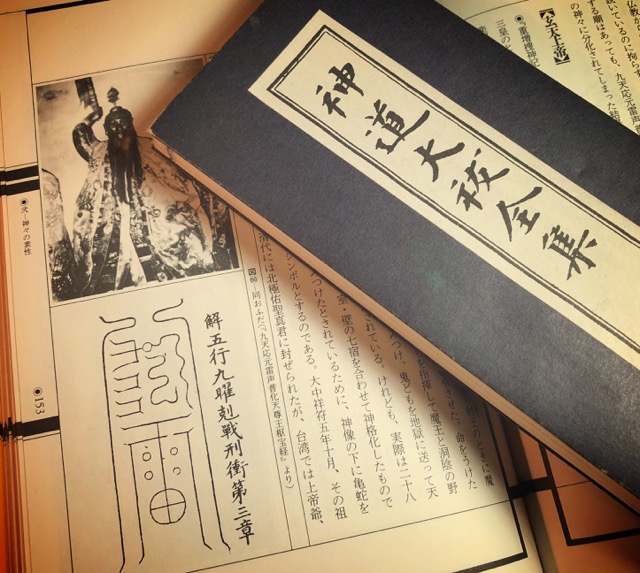 神道大祓全集
仏教から
続いているのに拘ら
する廟はあっても、九天応元雷声
の神々に分化されてしまった結
【玄天上帝】
●『重増捜神記
三皇の
きに魔
させた。命をうけた
を指揮して魔王と洞陰の野
つけ、鬼どもを地獄に送って天
されている。けれども、実際は二十八
室・壁の七宿を合わせて神格化したもので
つけたとされているために、神像の下に亀蛇を
シンボルとするのである。大中祥符五年十月、その祖
清代には北極佑聖真君に封ぜられたが、台湾では上帝爺、
図66―同おふだ(『九天応元雷声普化天尊玉枢宝経』より)
解五行九曜剋戦刑衝第三章
●弐・神々の素性
●153